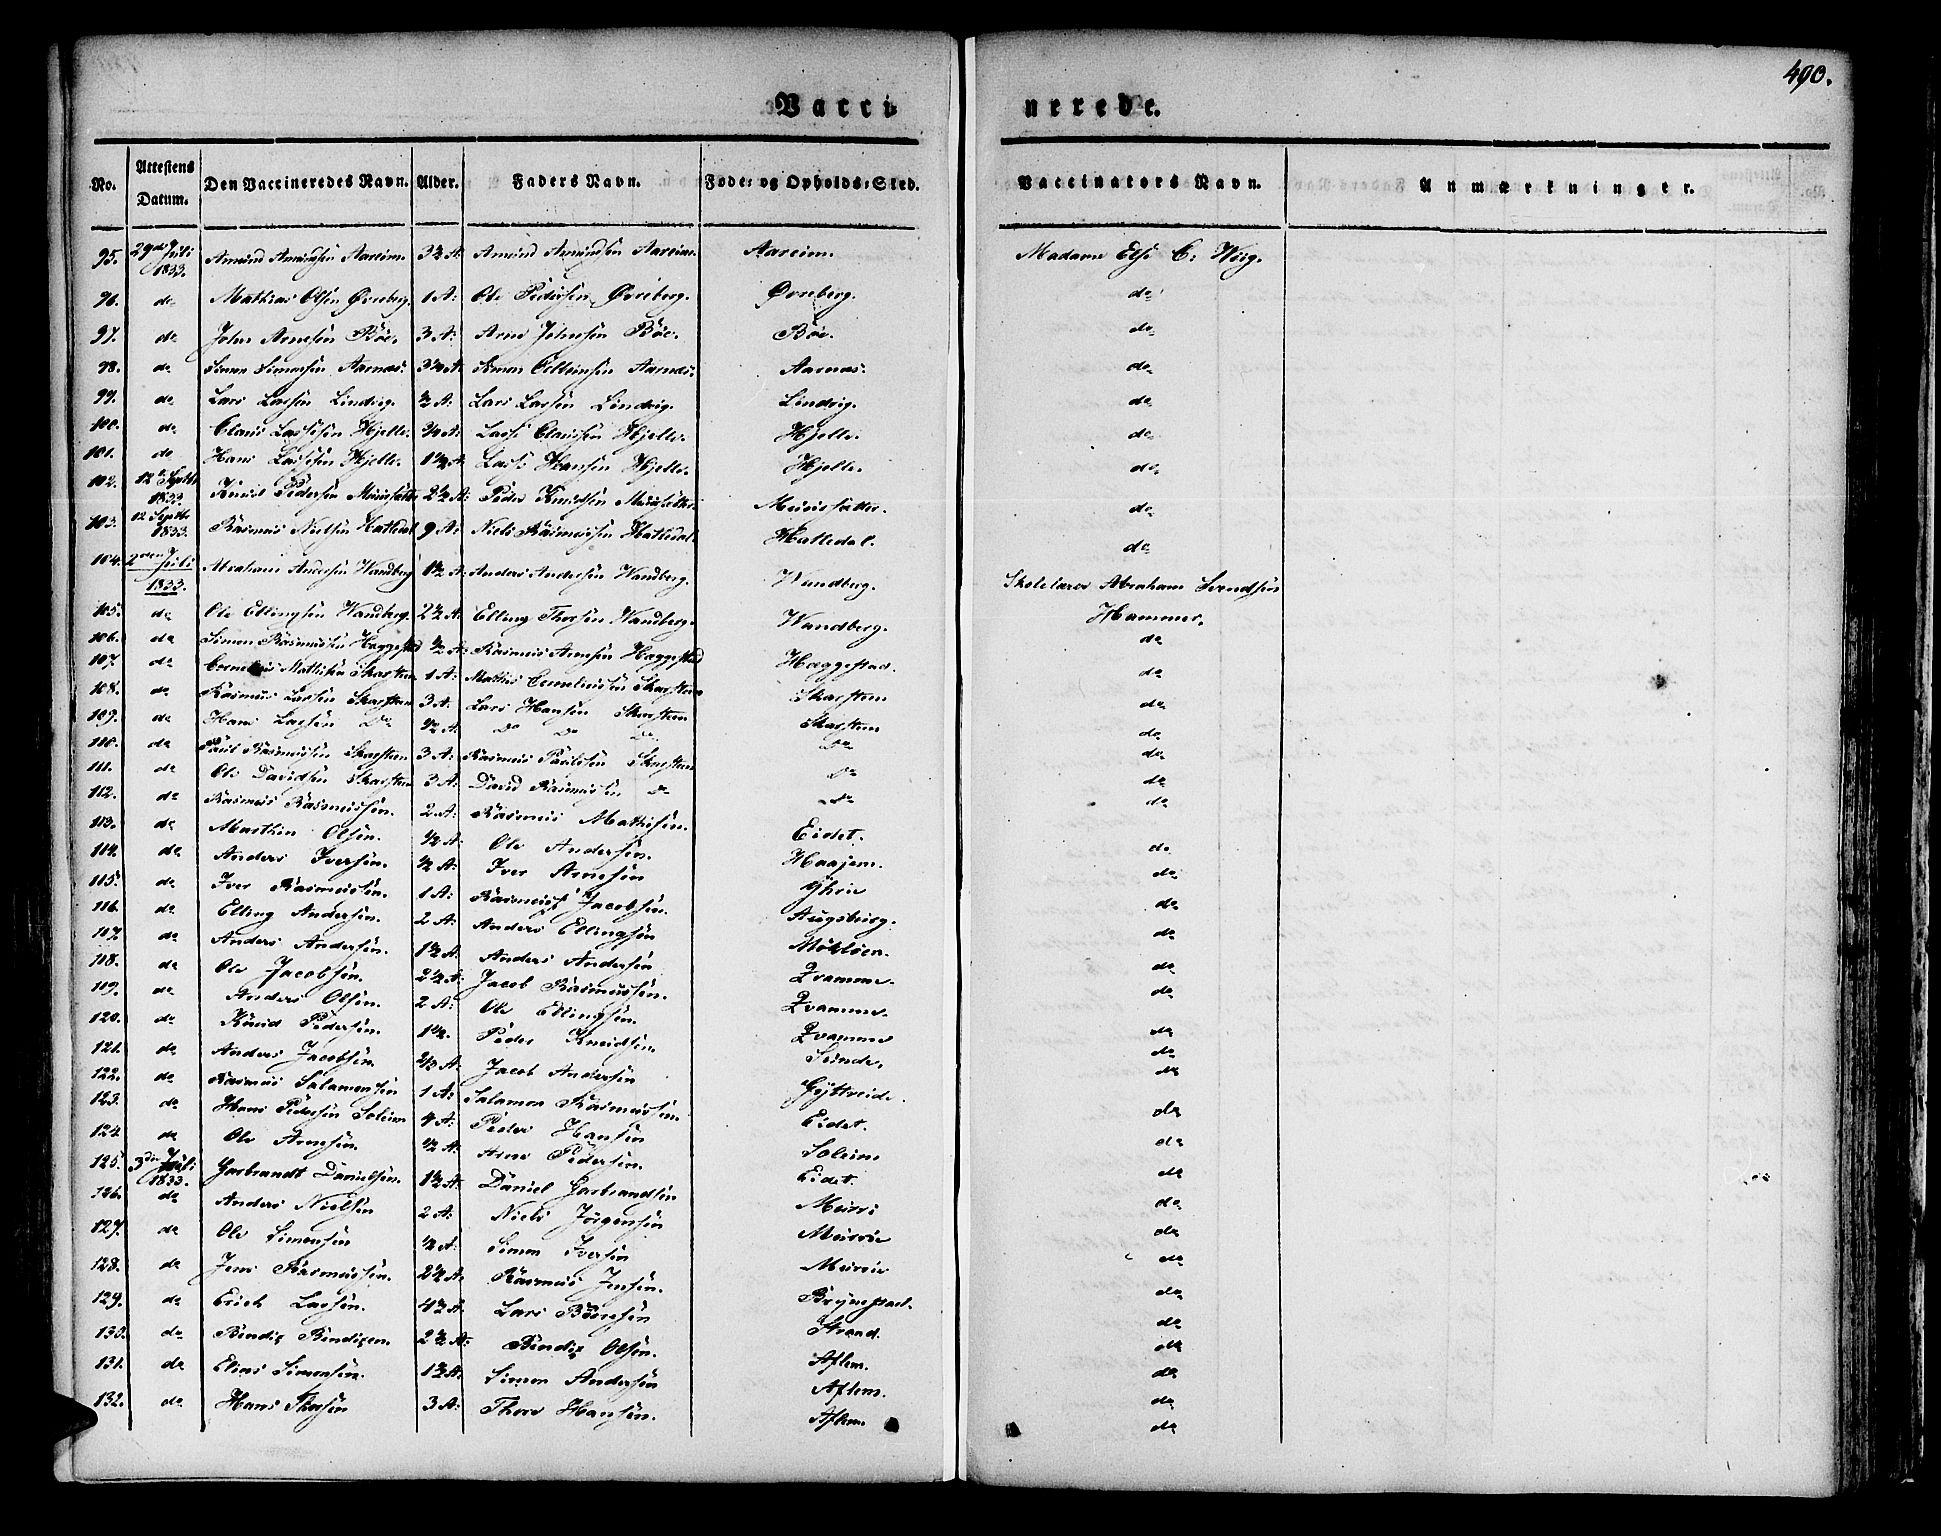 490.
Vaccinerede.
No. Attestens Datum. Den Vaccineredes Navn. Alder. Faders Navn. Føde- og Opholds-Sted. Vaccinators Navn. Anmærkninger.
95. 29de Juli 1833. Amund Amundsen Aareim. 3½ A: Amund Amundsen Aareim. Aareim. Madame Else C: Krieg.
96. do Mathias Olsen Øvreberg. 1 A: Ole Pedersen Øvreberg. Øvreberg. do
97. do John Arnesen Böe. 3 A: Arne Johnsen Böe. Böe. do
98. do Simon Simonsen Aarnæs. 3½ A: Simon Aarnæs. Aarnæs. do
99. do Lars Larsen Lindvig. ½ A: Lars Larsen Lindvig. Lindvig. do
100. do Claus Lassesen Hjelle. ¾ A: Lasse Claussen Hjelle. Hjelle. do
101. do Hans Lassesen Hjelle. 1½ A: Lasse Hansen Hjelle. Hjelle. do
102. 12te Septbr 1833 Knud Pedersen 2½ A: Peder Knudsen do
103. 12 Septbr 1833. Rasmus Nielsen Hatledal 9 A: Niels Rasmussen Hatledal. Hatledal. do
104. 2den Juli 1833. Abraham Andersen Wandberg 1½ A: Anders Andersen Wandberg. Wandberg. Skolelærer Abraham Svendsen Hammer.
105. do Ole Ellingsen Wandberg. 2½ A: Elling Thorsen Wandberg. Wandberg. do
106. do Simon Rasmussen Haggestad ½ A: Rasmus Arnesen Haggestad Haggestad. do
107. do Cornelius Mathisen Skarsteen 1 A: Mathis Corneliussen Skarsteen Skarsteen do
108. do Rasmus Larsen Skarsteen 3 A: Lars Hansen Skarsteen Skarsteen do
109. do Hans Larsen Do ½ A: Do Do Do Do do
110. do Paul Rasmussen Skarsteen 3 A: Rasmus Paulsen Skarsteen Do do
111. do Ole Davidsen Skarsteen 3 A: David Rasmussen Do Do do
112. do Rasmus Rasmussen. 2 A: Rasmus Mathisen. Eidet. do
113. do Marthin Olsen. ½ A: Ole Andersen. Haajem. do
114. do Anders Iversen. ½ A: Iver Arnesen Yhrie do
115. do Iver Rasmussen. 1 A: Rasmus Jacobsen. Augsburg. do
116. do Elling Andersen. 2 A: Anders Ellingsen Möklöen. do
107. do Anders Andersen. 1½ A: Anders Andersen Qvamme. do
108. do Ole Jacobsen. 2½ A: Jacob Rasmussen. Qvamme. do
109. do Anders Olsen. 2 A: Ole Ellingsen. Qvamme do
120. do Knud Pedersen. 1½. Peder Knudsen. Sunde. do
121. do Anders Jacobsen. ⅔ A: Jacob Andersen do
122. do Rasmus Salamonsen 1 A: Salamon Rasmussen. Eidet. do
123. do Hans Pedersen Soleim 4 A: Peder Hansen Soleim do
124. do Ole Arnesen. ½ A: Arne Pedersen. Eidet. do
125. 3die Juli 1833. Garbrandt Danielsen. 1½ A: Daniel Garbrandsen Muri do
126. do Anders Nielsen 2 A: Niels Jörgensen Murrie do
127. do Ole Simonsen ½ A: Simon Iversen Murrie do
128. do Jens Rasmussen. 2½ A: Rasmus Jensen. Brynestad. do
129. do Erich Larsen. 4½ A: Lars Börresen Strand. do
130. do Bendix Bendixen. 2½ A: Bendix Olsen. Aflem. do
131. do Elias Simonsen. 1½ A: Simon Andersen Aflem. do
132. do Hans Thorsen 3 A: Thore Hansen. Aflem. do